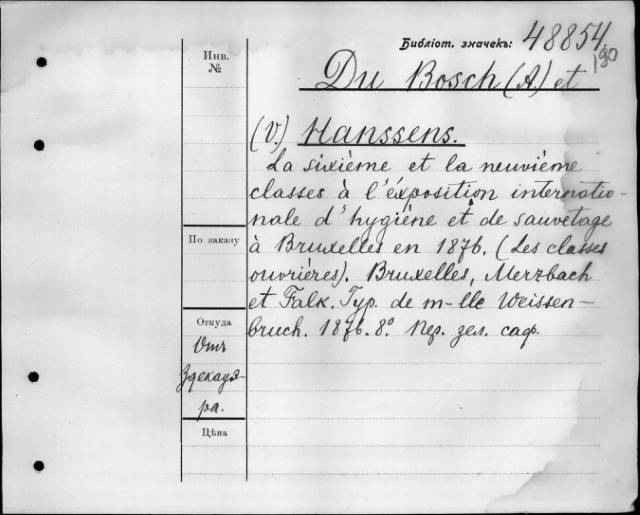 Библіот. значекъ: 48854
190
Инв.
№
Du Bosch (A.) et
(V.) Hanssens.
La sixième et la neuvième
classes à l'éxposition internatio-
nale d'hygiène et de sauvetage
à Bruxelles en 1876. (Les classes
ouvrières). Bruxelles, Merzbach
et Falk. Typ. de m-lle Weissen-
bruch. 1876. 8º Пер. зел. саф.
По заказу
Откуда
Отъ
Здекауэ-
ра.
Цѣна